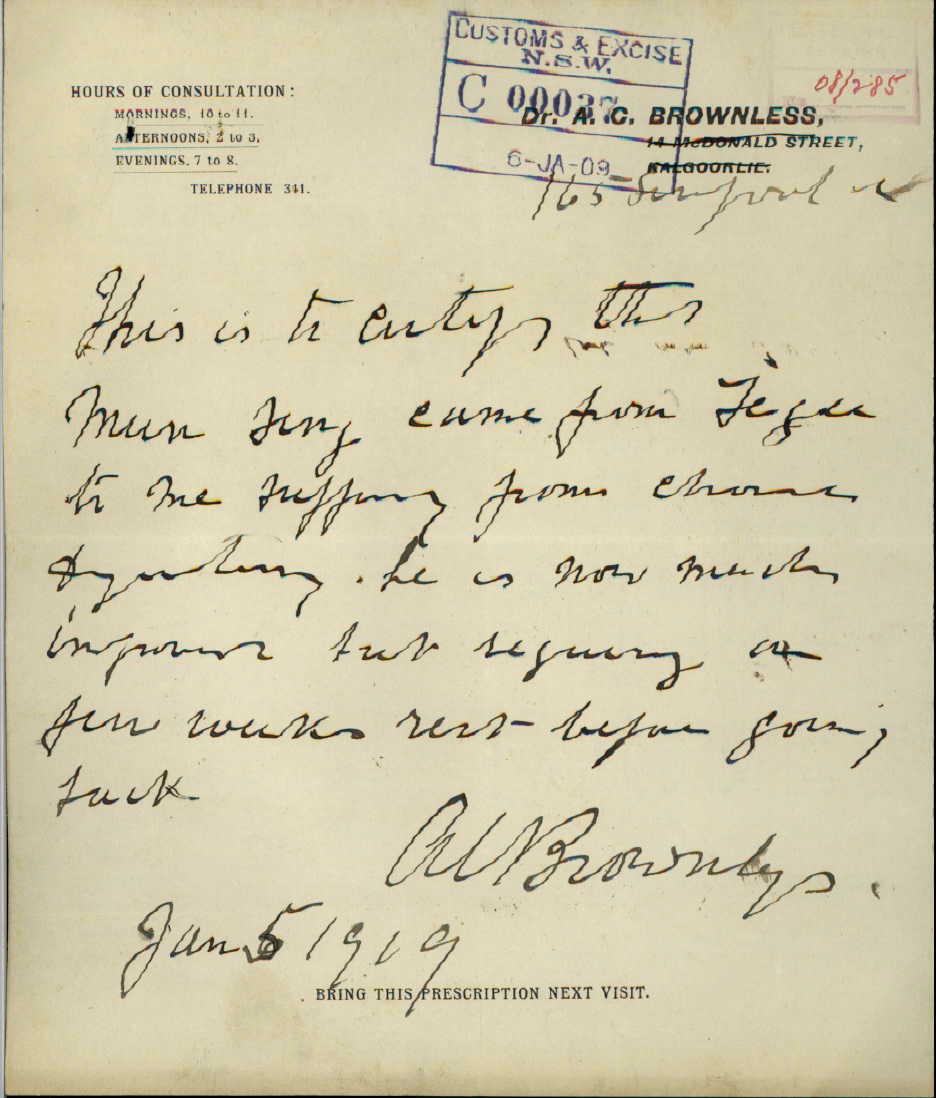 CUSTOMS & EXCISE
N.S.W.
C 00037
6-JA-09
08/285
HOURS OF CONSULTATION:
MORNINGS, 10 to 11.
AFTERNOONS, 2 to 3.
EVENINGS, 7 to 8.
TELEPHONE 341.
Dr. A. C. BROWNLESS,
14 McDONALD STREET,
KALGOORLIE.
165 Liverpool st
This is to certify that
Mun Sing came from
to me suffering from chronic
dysentery. he is now much
improved but requiring a
few weeks rest before going
back
AC Brownless.
Jan 5 1909
BRING THIS PRESCRIPTION NEXT VISIT.